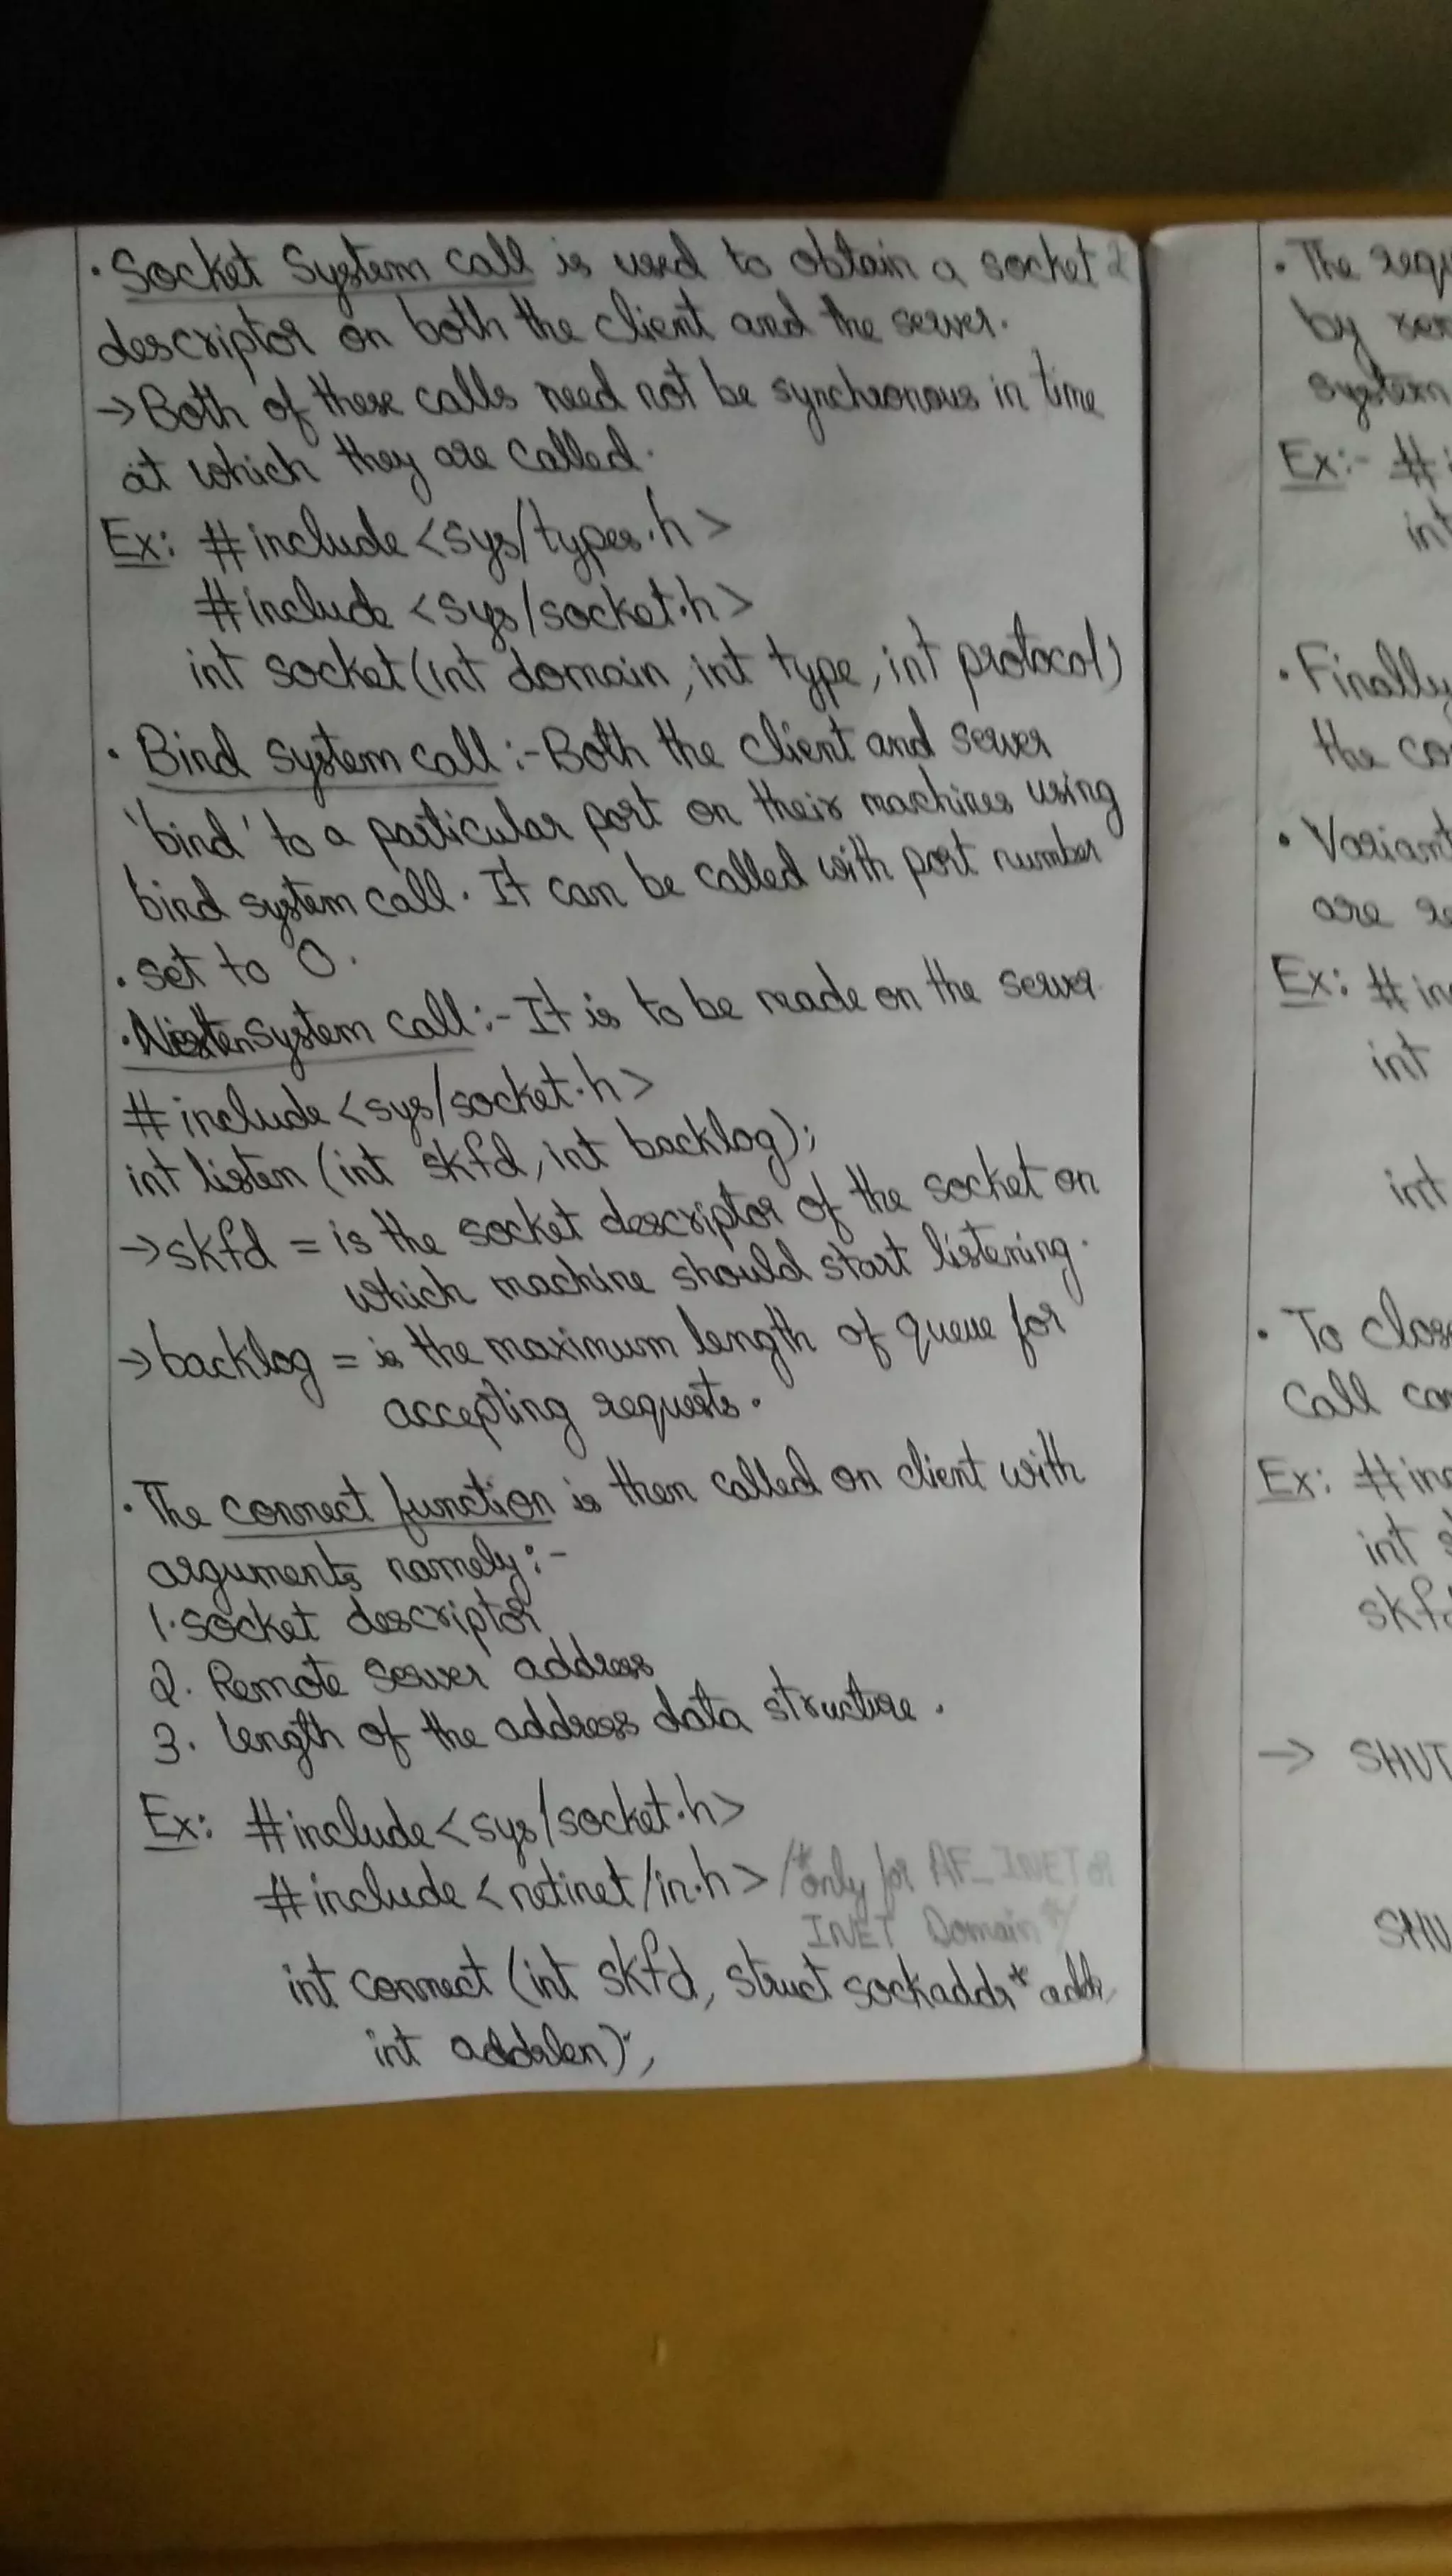 · Socket System call is used to obtain a socket
descriptor on both the client and the server.
→ Both of these calls need not be synchronous in time
at which they are called.
Ex: #include <sys/types.h>
#include <sys/socket.h>
int socket (int domain, int type, int protocol)
· Bind system call :- Both the client and server
'bind' to a particular port on their machines using
bind system call. It can be called with port number
· set to 0.
· Listen System call :- It is to be made on the server
#include <sys/socket.h>
int listen (int skfd, int backlog);
→ skfd = is the socket descriptor of the socket on
which machine should start listening.
→ backlog = is the maximum length of queue for
accepting requests.
· The connect function is then called on client with
arguments namely:-
1. Socket descriptor
2. Remote Server address
3. length of the address data structure.
Ex: #include <sys/socket.h>
#include <netinet/in.h> /*only for AF_INET or
INET Domain*/
int connect (int skfd, struct sockaddr* addr,
int addrlen);
· The
by
system
Ex:- #
int
· Finally
the
· Variant
are
Ex: #
int
int
· To
Call
Ex: #
int
→